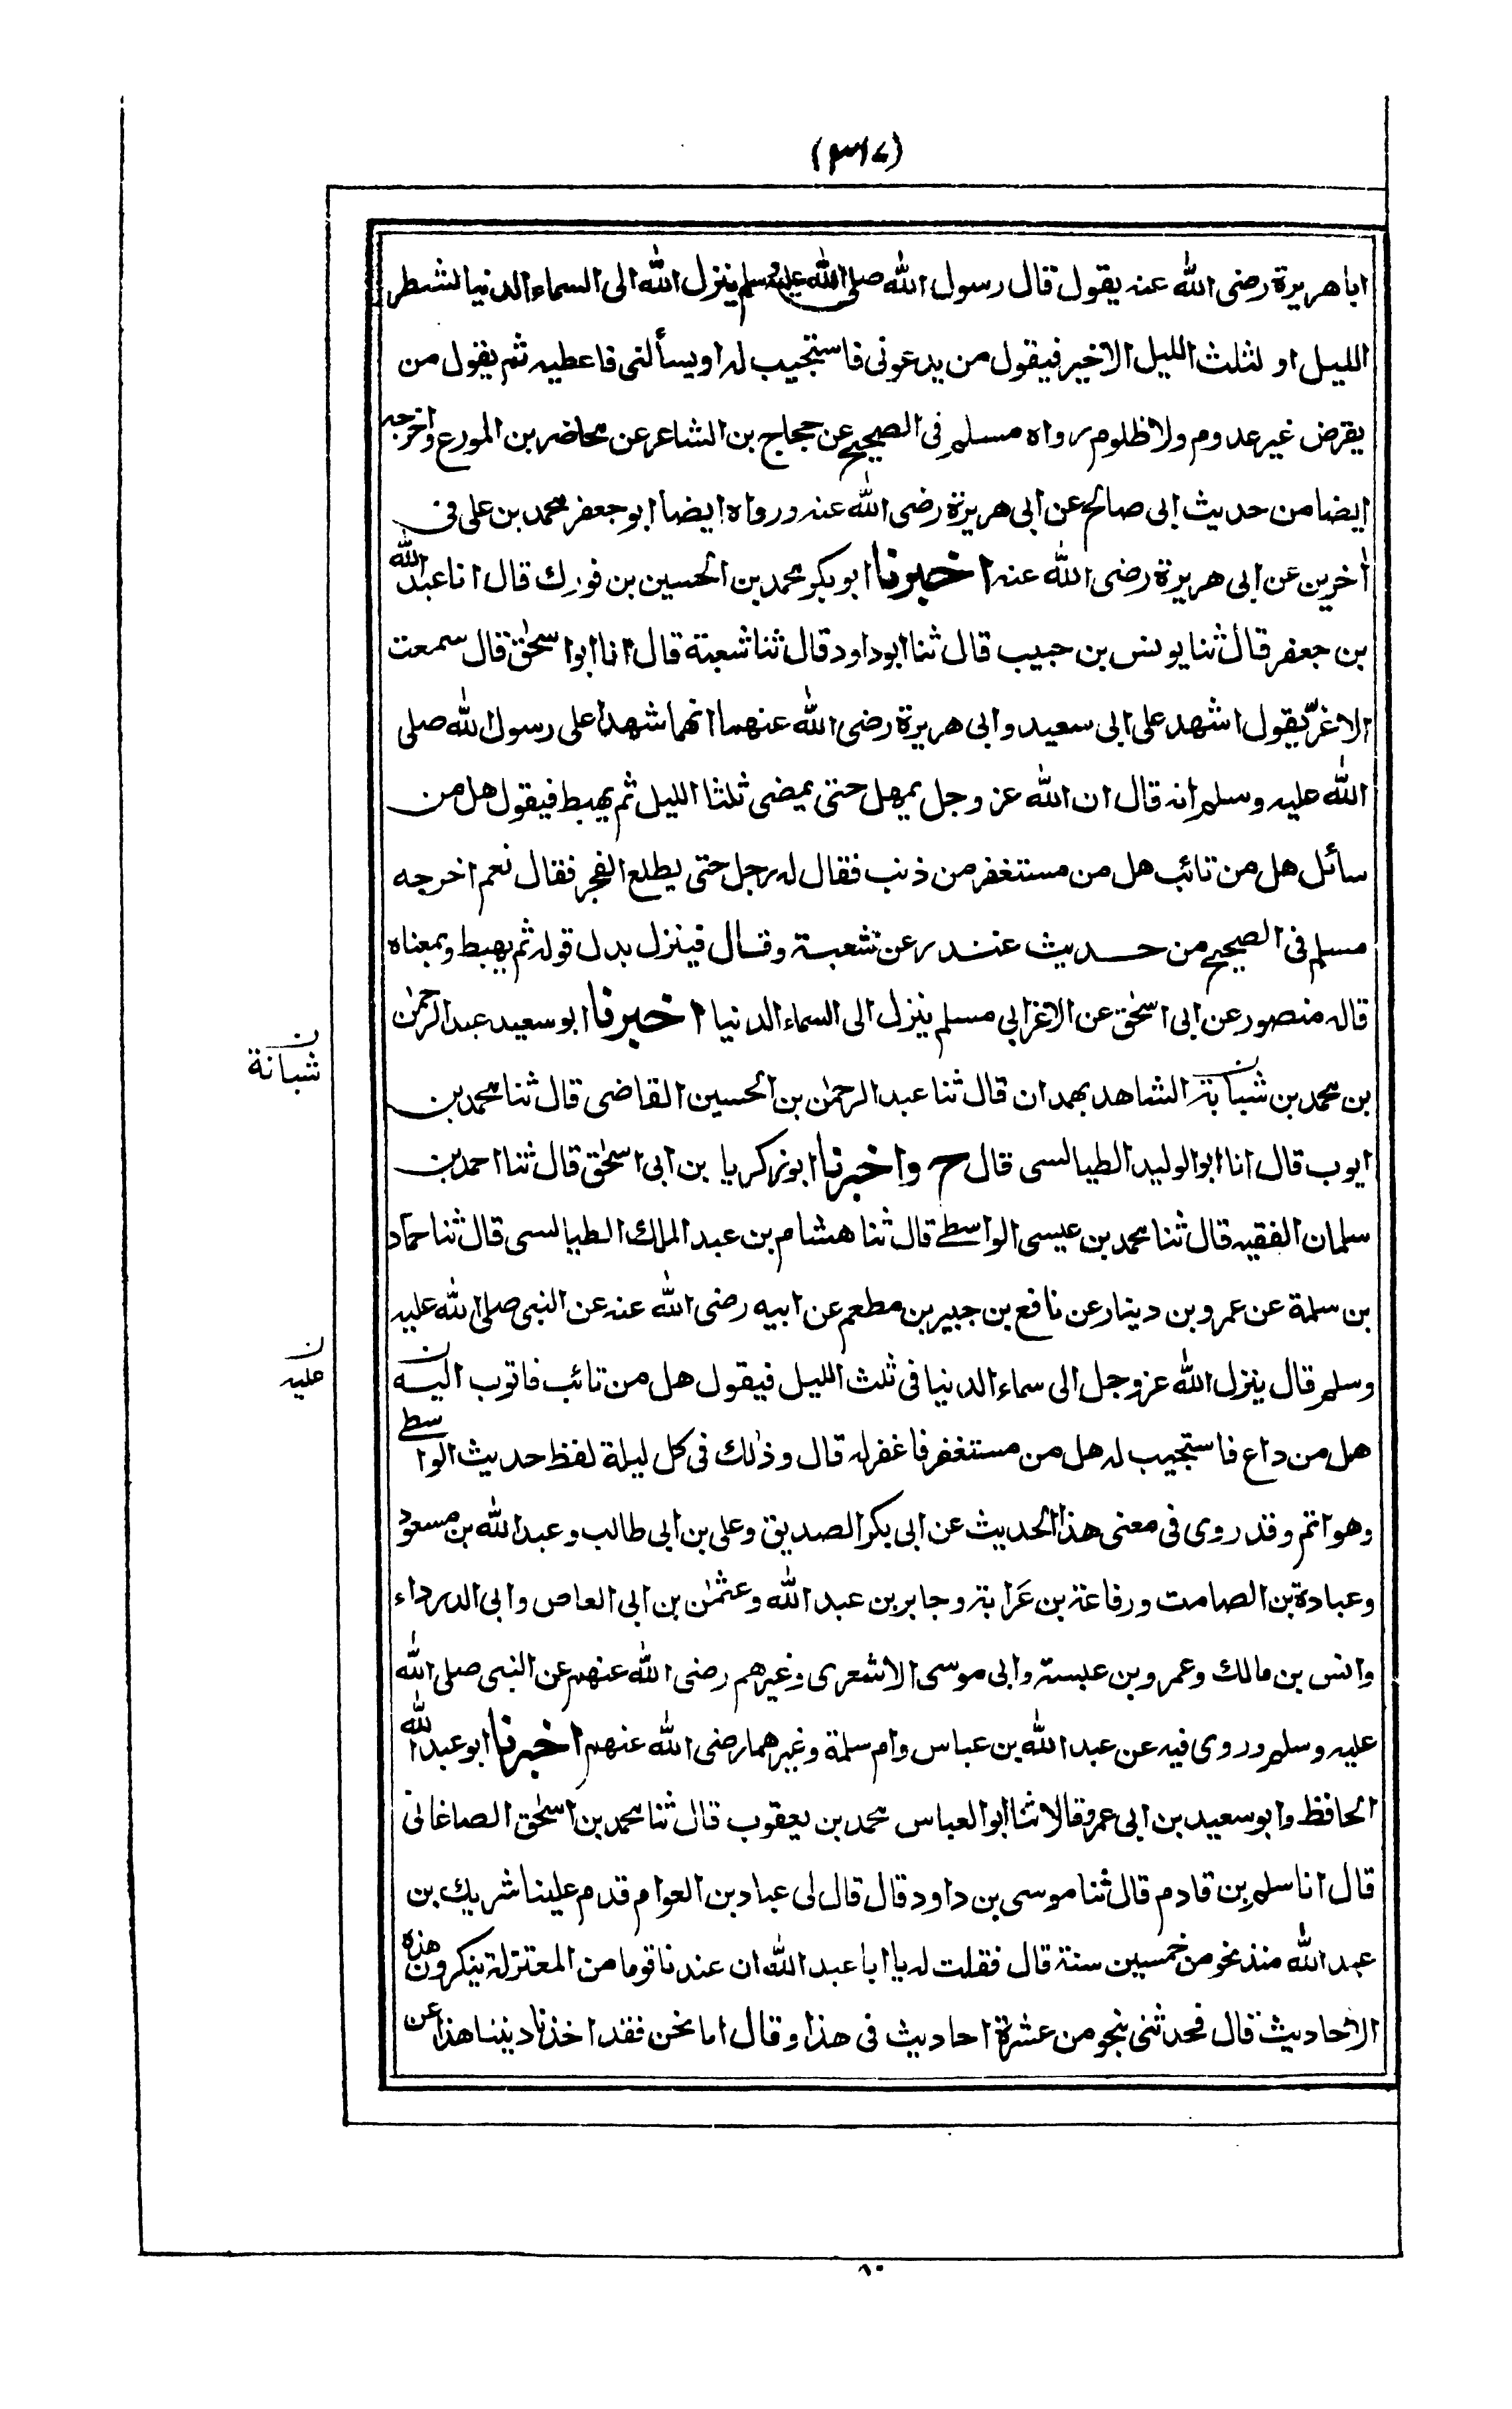 (٣١٧)
اباهريرة رضى الله عنه يقول قال رسول الله صلى الله عليه وسلم ينزل الله الى السماء الدنيا لشطر
الليل او لثلث الليل الاخير فيقول من يدعونى فاستجيب له او يسألنى فاعطيه ثم يقول من
يقرض غير عدوم ولا ظلوم رواه مسلم فى الصحيح عن حجاج بن الشاعر عن محاضر بن المورع واخرجه
ايضا من حديث ابى صالح عن ابى هريرة رضى الله عنه ورواه ايضا ابو جعفر محمد بن على فى
أخرين عن ابى هريرة رضى الله عنه اخبرنا ابو بكر محمد بن الحسين بن فورك قال انا عبد الله
بن جعفر قال ثنا يونس بن حبيب قال ثنا ابو داود قال ثنا شعبة قال انا ابوا سحٰق قال سمعت
الاغرّ يقول اشهد على ابى سعيد وابى هريرة رضى الله عنهما انهما شهدا على رسول الله صلى
الله عليه وسلم انه قال ان الله عز وجل يمهل حتى يمضى ثلثا الليل ثم يهبط فيقول هل من
سائل هل من تائب هل من مستغفر من ذنب فقال له رجل حتى يطلع الفجر فقال نعم اخرجه
مسلم فى الصحيح من حديث غندر عن شعبة وقال فينزل بدل قوله ثم يهبط وبمعناه
قاله منصور عن ابى اسحٰق عن الاغر ابى مسلم ينزل الى السماء الدنيا اخبرنا ابو سعيد عبد الرحمٰن
ن
شبانة
بن محمد بن شبابة الشاهد بهمدان قال ثنا عبد الرحمٰن بن الحسين القاضى قال ثنا محمد بن
ايوب قال انا ابو الوليد الطيالسى قال ح واخبرنا ابو زكريا بن ابى اسحٰق قال ثنا احمد بن
سلمان الفقيه قال ثنا محمد بن عيسى الواسطے قال ثنا هشام بن عبد الملك الطيالسى قال ثنا حماد
بن سلمة عن عمرو بن دينار عن نافع بن جبير بن مطعم عن ابيه رضى الله عنه عن النبى صلى الله عليه
ن
عليه
وسلم قال ينزل الله عز وجل الى سماء الدنيا فى ثلث الليل فيقول هل من تائب فاتوب اليه
هل من داع فاستجيب له هل من مستغفر فاغفر له قال وذٰلك فى كل ليلة لفظ حديث الواسطے
وهو اتم وقد روى فى معنى هذا الحديث عن ابى بكر الصديق وعلى بن ابى طالب وعبد الله بن مسعود
وعبادة بن الصامت ورفاعة بن عَرابة وجابر بن عبد الله وعثمٰن بن ابى العاص وابى الدرداء
وانس بن مالك وعمرو بن عبسة وابى موسى الاشعرى وغيرهم رضى الله عنهم عن النبى صلى الله
عليه وسلم وروى فيه عن عبد الله بن عباس وام سلمة وغيرهما رضى الله عنهم اخبرنا ابو عبد الله
الحافظ وابو سعيد بن ابى عمرو قالا ثنا ابو العباس محمد بن يعقوب قال ثنا محمد بن اسحٰق الصاغانى
قال انا سلم بن قادم قال ثنا موسى بن داود قال قال لى عباد بن العوام قدم علينا شريك بن
عبد الله منذ نحو من خمسين سنة قال فقلت له يا ابا عبد الله ان عندنا قوما من المعتزلة ينكرون هذه
الاحاديث قال فحدثنى بنحو من عشرة احاديث فى هذا وقال اما نحن فقد اخذنا ديننا هذا عن
٨٠